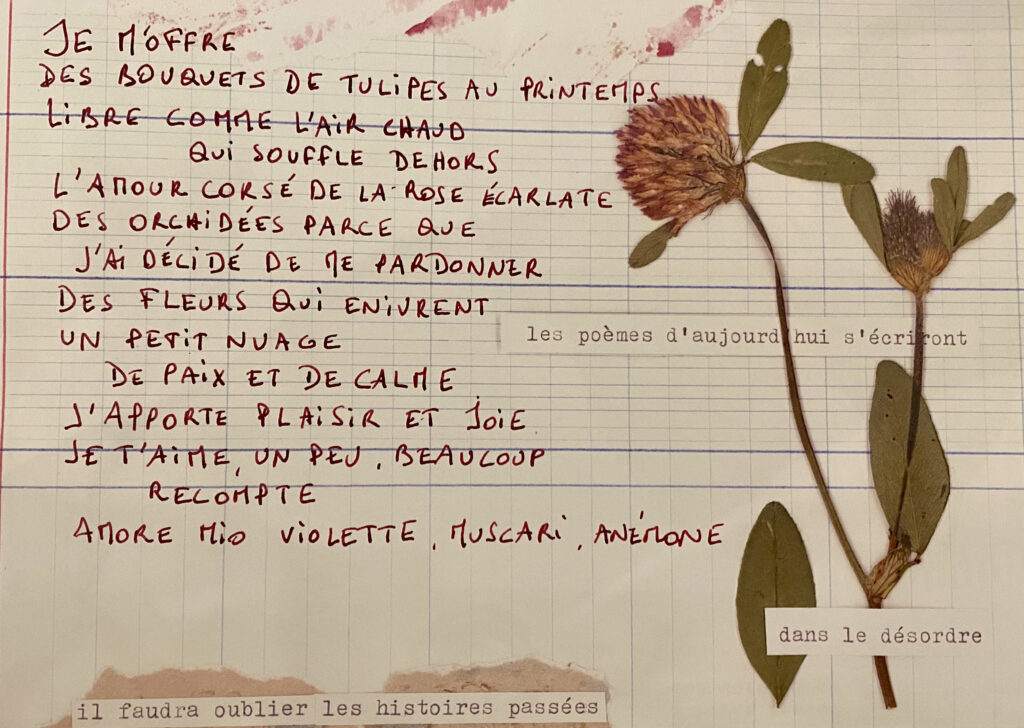 JE M'OFFRE
DES BOUQUETS DE TULIPES AU PRINTEMPS
LIBRE COMME L'AIR CHAUD
QUI SOUFFLE DEHORS
L'AMOUR CORSÉ DE LA ROSE ÉCARLATE
DES ORCHIDÉES PARCE QUE
J'AI DÉCIDÉ DE ME PARDONNER
DES FLEURS QUI ENIVRENT
UN PETIT NUAGE
DE PAIX ET DE CALME
J'APPORTE PLAISIR ET JOIE
JE T'AIME, UN PEU, BEAUCOUP
RECOMPTE
AMORE MIO VIOLETTE, MUSCARI, ANÉMONE
les poèmes d'aujourd'hui s'écriront
dans le désordre
il faudra oublier les histoires passées